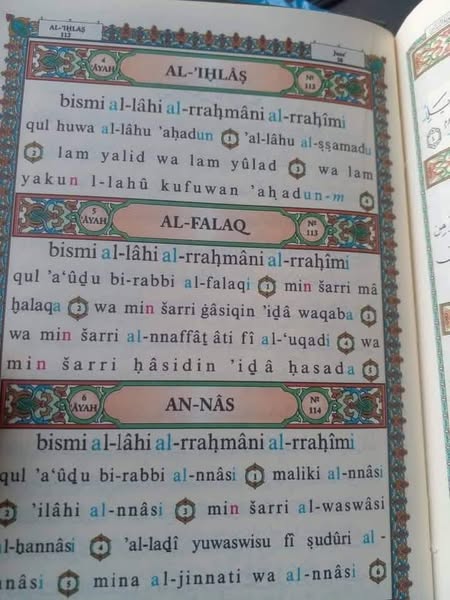 AL-'IḪLĀṢ
112
Juzu'
30
4
ÂYAH
AL-'IḪLÂṢ
№
112
bismi al-lâhi al-rraḥmâni al-rraḥîmi
qul huwa al-lâhu ’aḥadun 1 ’al-lâhu al-ṣṣamadu
2 lam yalid wa lam yûlad 3 wa lam
yakun l-lahû kufuwan ’aḥadun-m 4
5
ÂYAH
AL-FALAQ
№
113
bismi al-lâhi al-rraḥmâni al-rraḥîmi
qul ’a‘ûḏu bi-rabbi al-falaqi 1 min šarri mâ
ḫalaqa 2 wa min šarri ġâsiqin ’iḏâ waqaba 3
wa min šarri al-nnaffâṯâti fî al-‘uqadi 4 wa
min šarri ḥâsidin ’iḏâ ḥasada 5
6
ÂYAH
AN-NÂS
№
114
bismi al-lâhi al-rraḥmâni al-rraḥîmi
qul ’a‘ûḏu bi-rabbi al-nnâsi 1 maliki al-nnâsi
2 ’ilâhi al-nnâsi 3 min šarri al-waswâsi
al-ḫannâsi 4 ’al-laḏî yuwaswisu fî ṣudûri al-
nnâsi 5 mina al-jinnati wa al-nnâsi 6